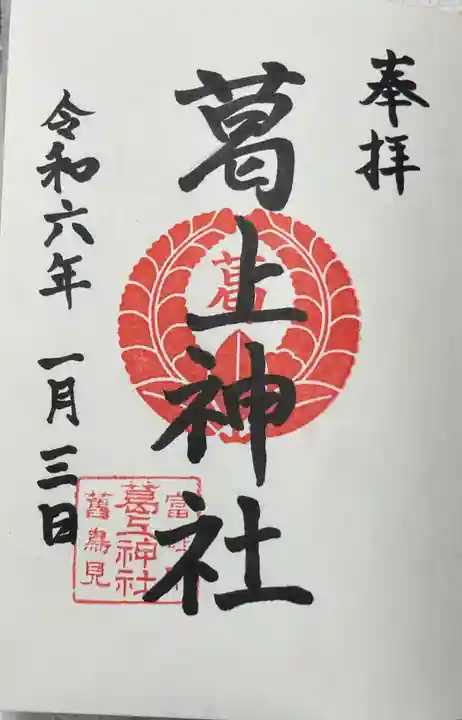 奉拝
葛上神社
葛
令和六年 一月三日
富
葛上神社
舊鳥見